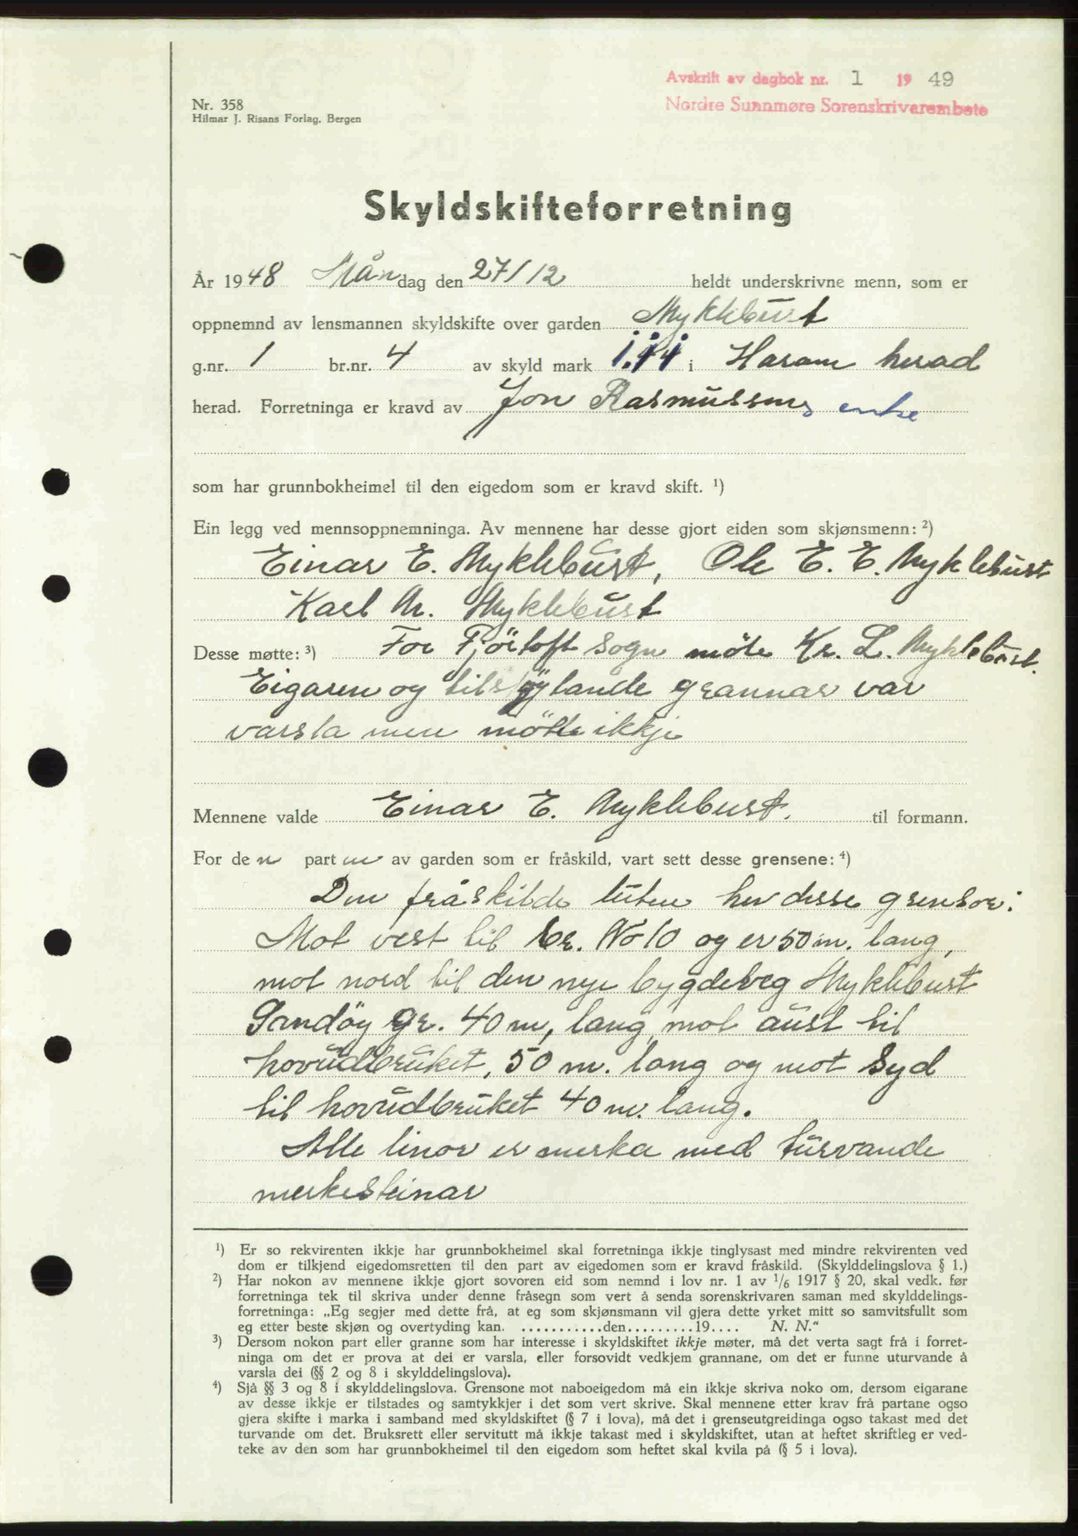 Avskrift av dagbok nr. 1 1949
Nordre Sunnmøre Sorenskrivarembete
Nr. 358
Hilmar J. Risans Forlag, Bergen
Skyldskifteforretning
År 1948 Måndag den 27/12 heldt underskrivne menn, som er
oppnemnd av lensmannen skyldskifte over garden Myklebust
g.nr. 1 br.nr. 4 av skyld mark i Haram herad
herad. Forretninga er kravd av Jon Rasmussens enke
som har grunnbokheimel til den eigedom som er kravd skift. ¹)
Ein legg ved mennsoppnemninga. Av mennene har desse gjort eiden som skjønsmenn: ²)
Einar E. Myklebust, Ole E. E. Myklebust
Karl M. Myklebust
Desse møtte: ³) For Fjörtoft sogn möte Kr. L. Myklebust.
Eigaren og tilstöytande grannar var
varsla men mötte ikkje
Mennene valde Einar E. Myklebust. til formann.
For den parten av garden som er fråskild, vart sett desse grensene: ⁴)
Den fråskilde luten her desse grensor:
Mot vest til br. No 10 og er 50 m. lang,
mot nord til den nye bygdeveg Myklebust
Sandöy gr. 40 m, lang, mot aust til
hovudbruket, 50 m. lang og mot Syd
til hovudbruket 40 m. lang.
Alle linor er merka med turvande
merkesteinar
¹) Er so rekvirenten ikkje har grunnbokheimel skal forretninga ikkje tinglysast med mindre rekvirenten ved
dom er tilkjend eigedomsretten til den part av eigedomen som er kravd fråskild. (Skylddelingslova § 1.)
²) Har nokon av mennene ikkje gjort sovoren eid som nemnd i lov nr. 1 av ¹/₆ 1917 § 20, skal vedk. før
forretninga tek til skriva under denne fråsegn som vert å senda sorenskrivaren saman med skylddelings-
forretninga: „Eg segjer med dette frå, at eg som skjønsmann vil gjera dette yrket mitt so samvitsfullt som
eg etter beste skjøn og overtyding kan. ...........den.........19.... N. N.“
³) Dersom nokon part eller granne som har interesse i skyldskiftet ikkje møter, må det verta sagt frå i forret-
ninga om det er prova at dei er varsla, eller forsovidt vedkjem grannane, om det er funne uturvande å
varsla dei (§§ 2 og 8 i skylddelingslova).
⁴) Sjå §§ 3 og 8 i skylddelingslova. Grensone mot naboeigedom må ein ikkje skriva noko om, dersom eigarane
av desse ikkje er tilstades og samtykkjer i det som vert skrive. Skal mennene etter krav frå partane ogso
gjera skifte i marka i samband med skyldskiftet (§ 7 i lova), må det i grenseutgreidinga ogso takast med det
turvande om det. Bruksrett eller servitutt må ikkje takast med i skyldskiftet, utan at heftet skriftleg er ved-
teke av den som har grunnbokheimel til den eigedom som heftet skal kvila på (§ 5 i lova).